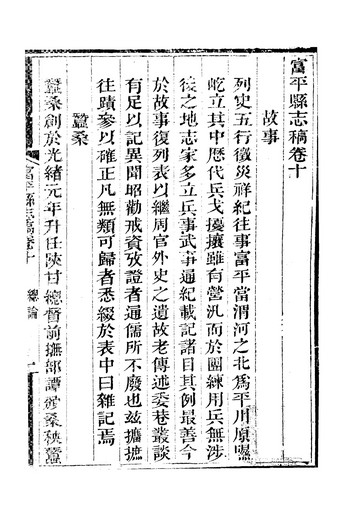 富平縣志稿卷十
故事
列史五行徵災祥紀往事富平當渭河之北爲平川原隰
屹立其中歷代兵戈擾攘雖有營汛而於團練用兵無涉
後之地志家多立兵事武事通紀載記諸目其例最善今
於故事復列表以繼周官外史之遺故老傳述委巷叢談
有足以記異聞昭勸戒資攷證者通儒所不廢也玆摭摭
往蹟參以確正凡無類可歸者悉綴於表中曰雜記焉
蠶桑
蠶桑創於光緒元年升任陝甘總督前撫部譚 桑秧蠶
富平縣志稿卷十
總論
一